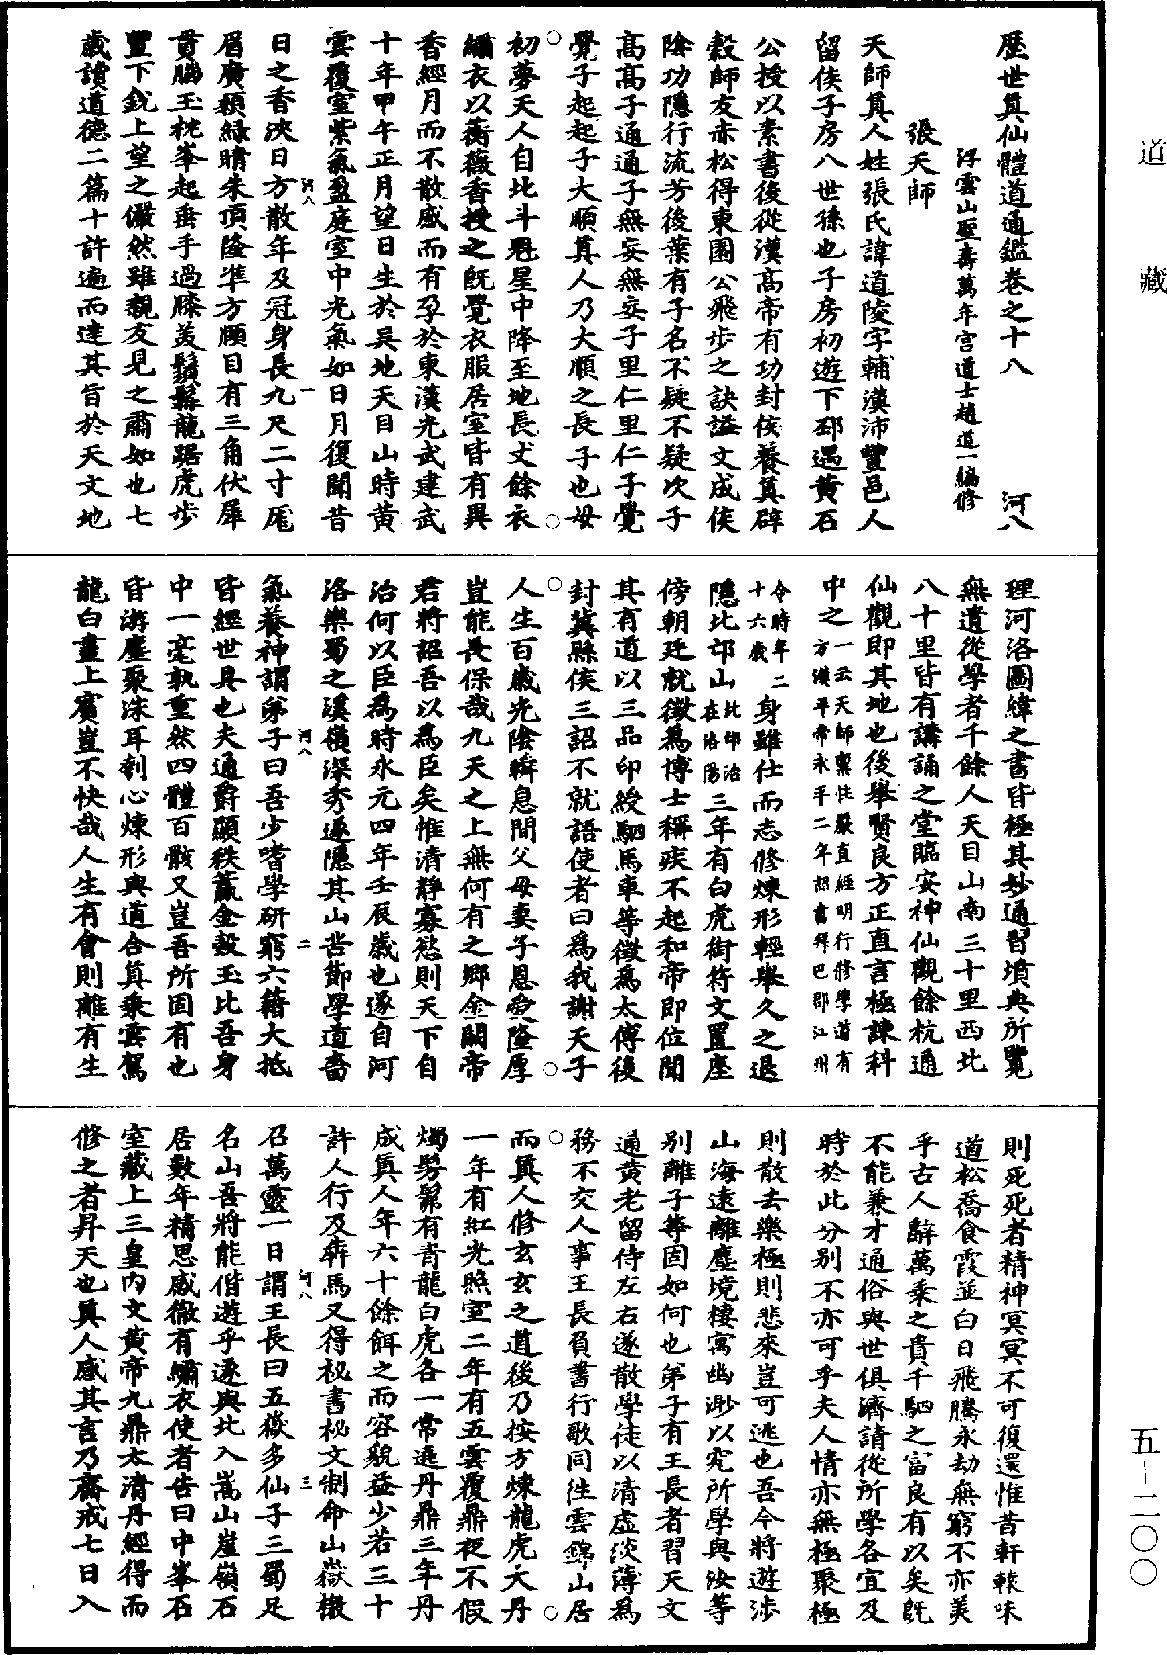 道藏
歷世真仙體道通鑑卷之十八　河八
浮雲山聖壽萬年宮道士趙道一編修
張天師
天師真人姓張氏諱道陵字輔漢沛豐邑人
留侯子房八世孫也子房初遊下邳遇黃石
公授以素書後從漢高帝有功封侯養真辟
穀師友赤松得東園公飛步之訣謚文成侯
陰功隱行流芳後葉有子名不疑不疑次子
高高子通通子無妄無妄子里仁里仁子覺
覺子起起子大順真人乃大順之長子也母
初夢天人自北斗魁星中降至地長丈餘衣
繡衣以蘅薇香授之既覺衣服居室皆有異
香經月而不散感而有孕於東漢光武建武
十年甲午正月望日生於吳地天目山時黃
雲覆室紫氣盈庭室中光氣如日月復聞昔
河八　一
日之香浹日方散年及冠身長九尺二寸厖
眉廣顙綠睛朱頂隆準方頤目有三角伏犀
貫腦玉枕峯起垂手過膝美鬚髯龍踞虎步
豐下銳上望之儼然雖親友見之肅如也七
歲讀道德二篇十許遍而達其旨於天文地
理河洛圖緯之書皆極其妙通習墳典所覽
無遺從學者千餘人天目山南三十里西北
八十里皆有講誦之堂臨安神仙觀餘杭通
仙觀即其地也後舉賢良方正直言極諫科
中之一云天師素性嚴直經明行修學道有
方漢平帝永平二年詔書拜巴郡江州
令時年二
十六歲身雖仕而志修煉形輕舉久之退
隱北邙山北邙治
在洛陽三年有白虎銜符文置座
傍朝廷就徵為博士稱疾不起和帝即位聞
其有道以三品印綬駟馬車等徵為太傅後
封冀縣侯三詔不就語使者曰為我謝天子
人生百歲光陰瞬息間父母妻子恩愛隆厚
豈能長保哉九天之上無何有之鄉金闕帝
君將詔吾以為臣矣惟清靜寡慾則天下自
治何以臣為時永元四年壬辰歲也遂自河
洛樂蜀之溪嶺深秀遂隱其山苦節學道嗇
河八　二
氣養神謂弟子曰吾少嗜學研窮六籍大抵
皆經世具也夫通爵顯秩藏金穀玉比吾身
中一毫孰重然四體百骸又豈吾所固有也
皆游塵聚沫耳刳心煉形與道合真乘雲駕
龍白晝上賓豈不快哉人生有會則離有生
則死死者精神冥冥不可復還惟昔軒轅味
道松喬食霞並白日飛騰永劫無窮不亦美
乎古人辭萬乘之貴千駟之富良有以矣旣
不能兼才通俗與世俱濟請從所學各宜及
時於此分別不亦可乎夫人情亦無極聚極
則散去樂極則悲來豈可逃也吾今將遊涉
山海遠離塵境棲寓幽渺以究所學與汝等
別離子等固如何也弟子有王長者習天文
通黃老留侍左右遂散學徒以清虛淡薄為
務不交人事王長負書行歌同往雲錦山居
而真人修玄玄之道後乃按方煉龍虎大丹
一年有紅光照室二年有五雲覆鼎夜不假
燭髣髴有青龍白虎各一常遶丹鼎三年丹
成真人年六十餘餌之而容貌益少若三十
許人行及犇馬又得祕書祕文制命山嶽檄
河八　三
召萬靈一日謂王長曰五嶽多仙子三蜀足
名山吾將能偕遊乎遂與北入嵩山崖嶺石
居數年精思感徹有繡衣使者告曰中峯石
室藏上三皇內文黃帝九鼎太清丹經得而
修之者昇天也真人感其言乃齋戒七日入
五-二〇〇